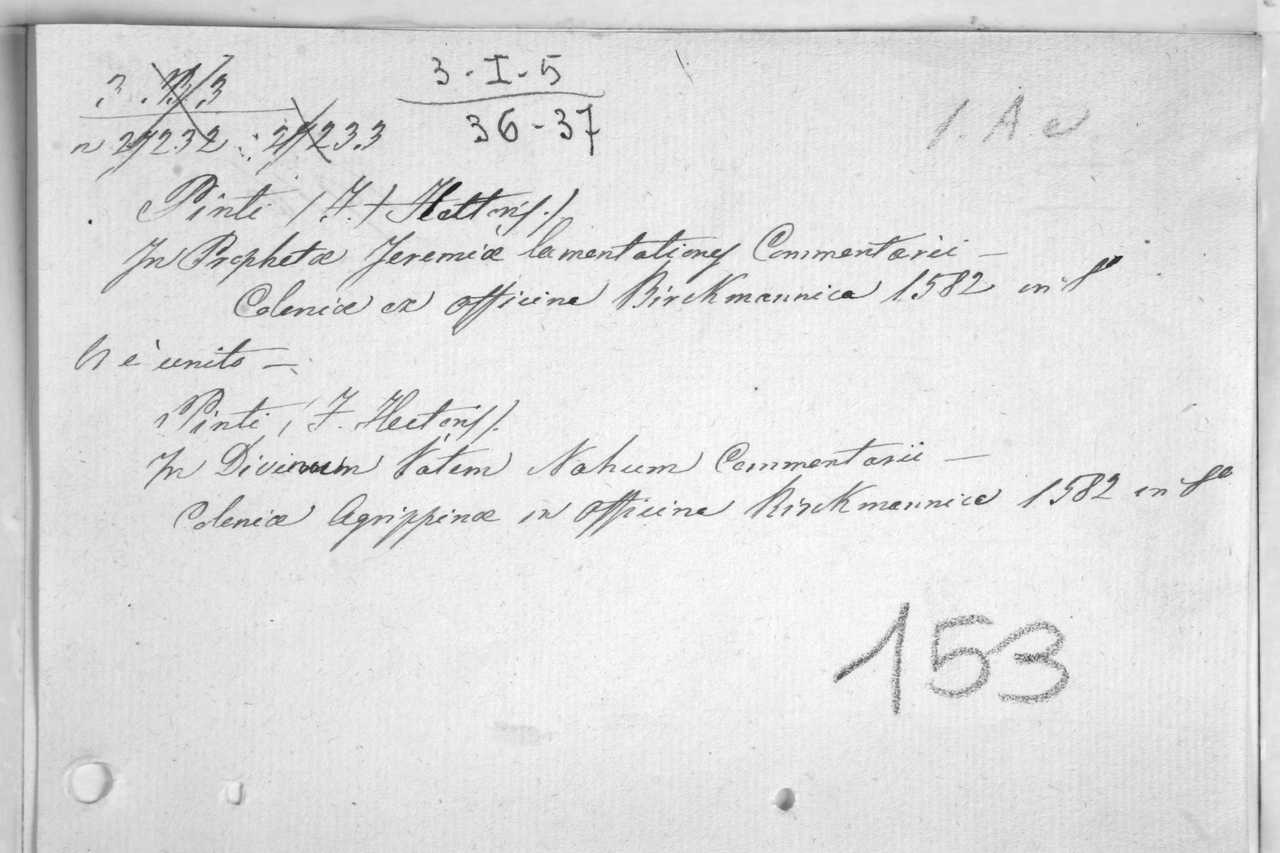 3-I-5
36-37
n 27232 : 27233
1. A e
Pinti (F.) Hettoris.)
In Prophetæ Jeremiæ lamentationes Commentarii —
Coloniæ ex officina Birckmannica 1582 in 8°
Vi è unito —
Pinti (F. Hectoris).
In Divinum Vatem Nahum Commentarii —
Coloniæ Agrippinæ in officina Birckmannica 1582 in 8°
153